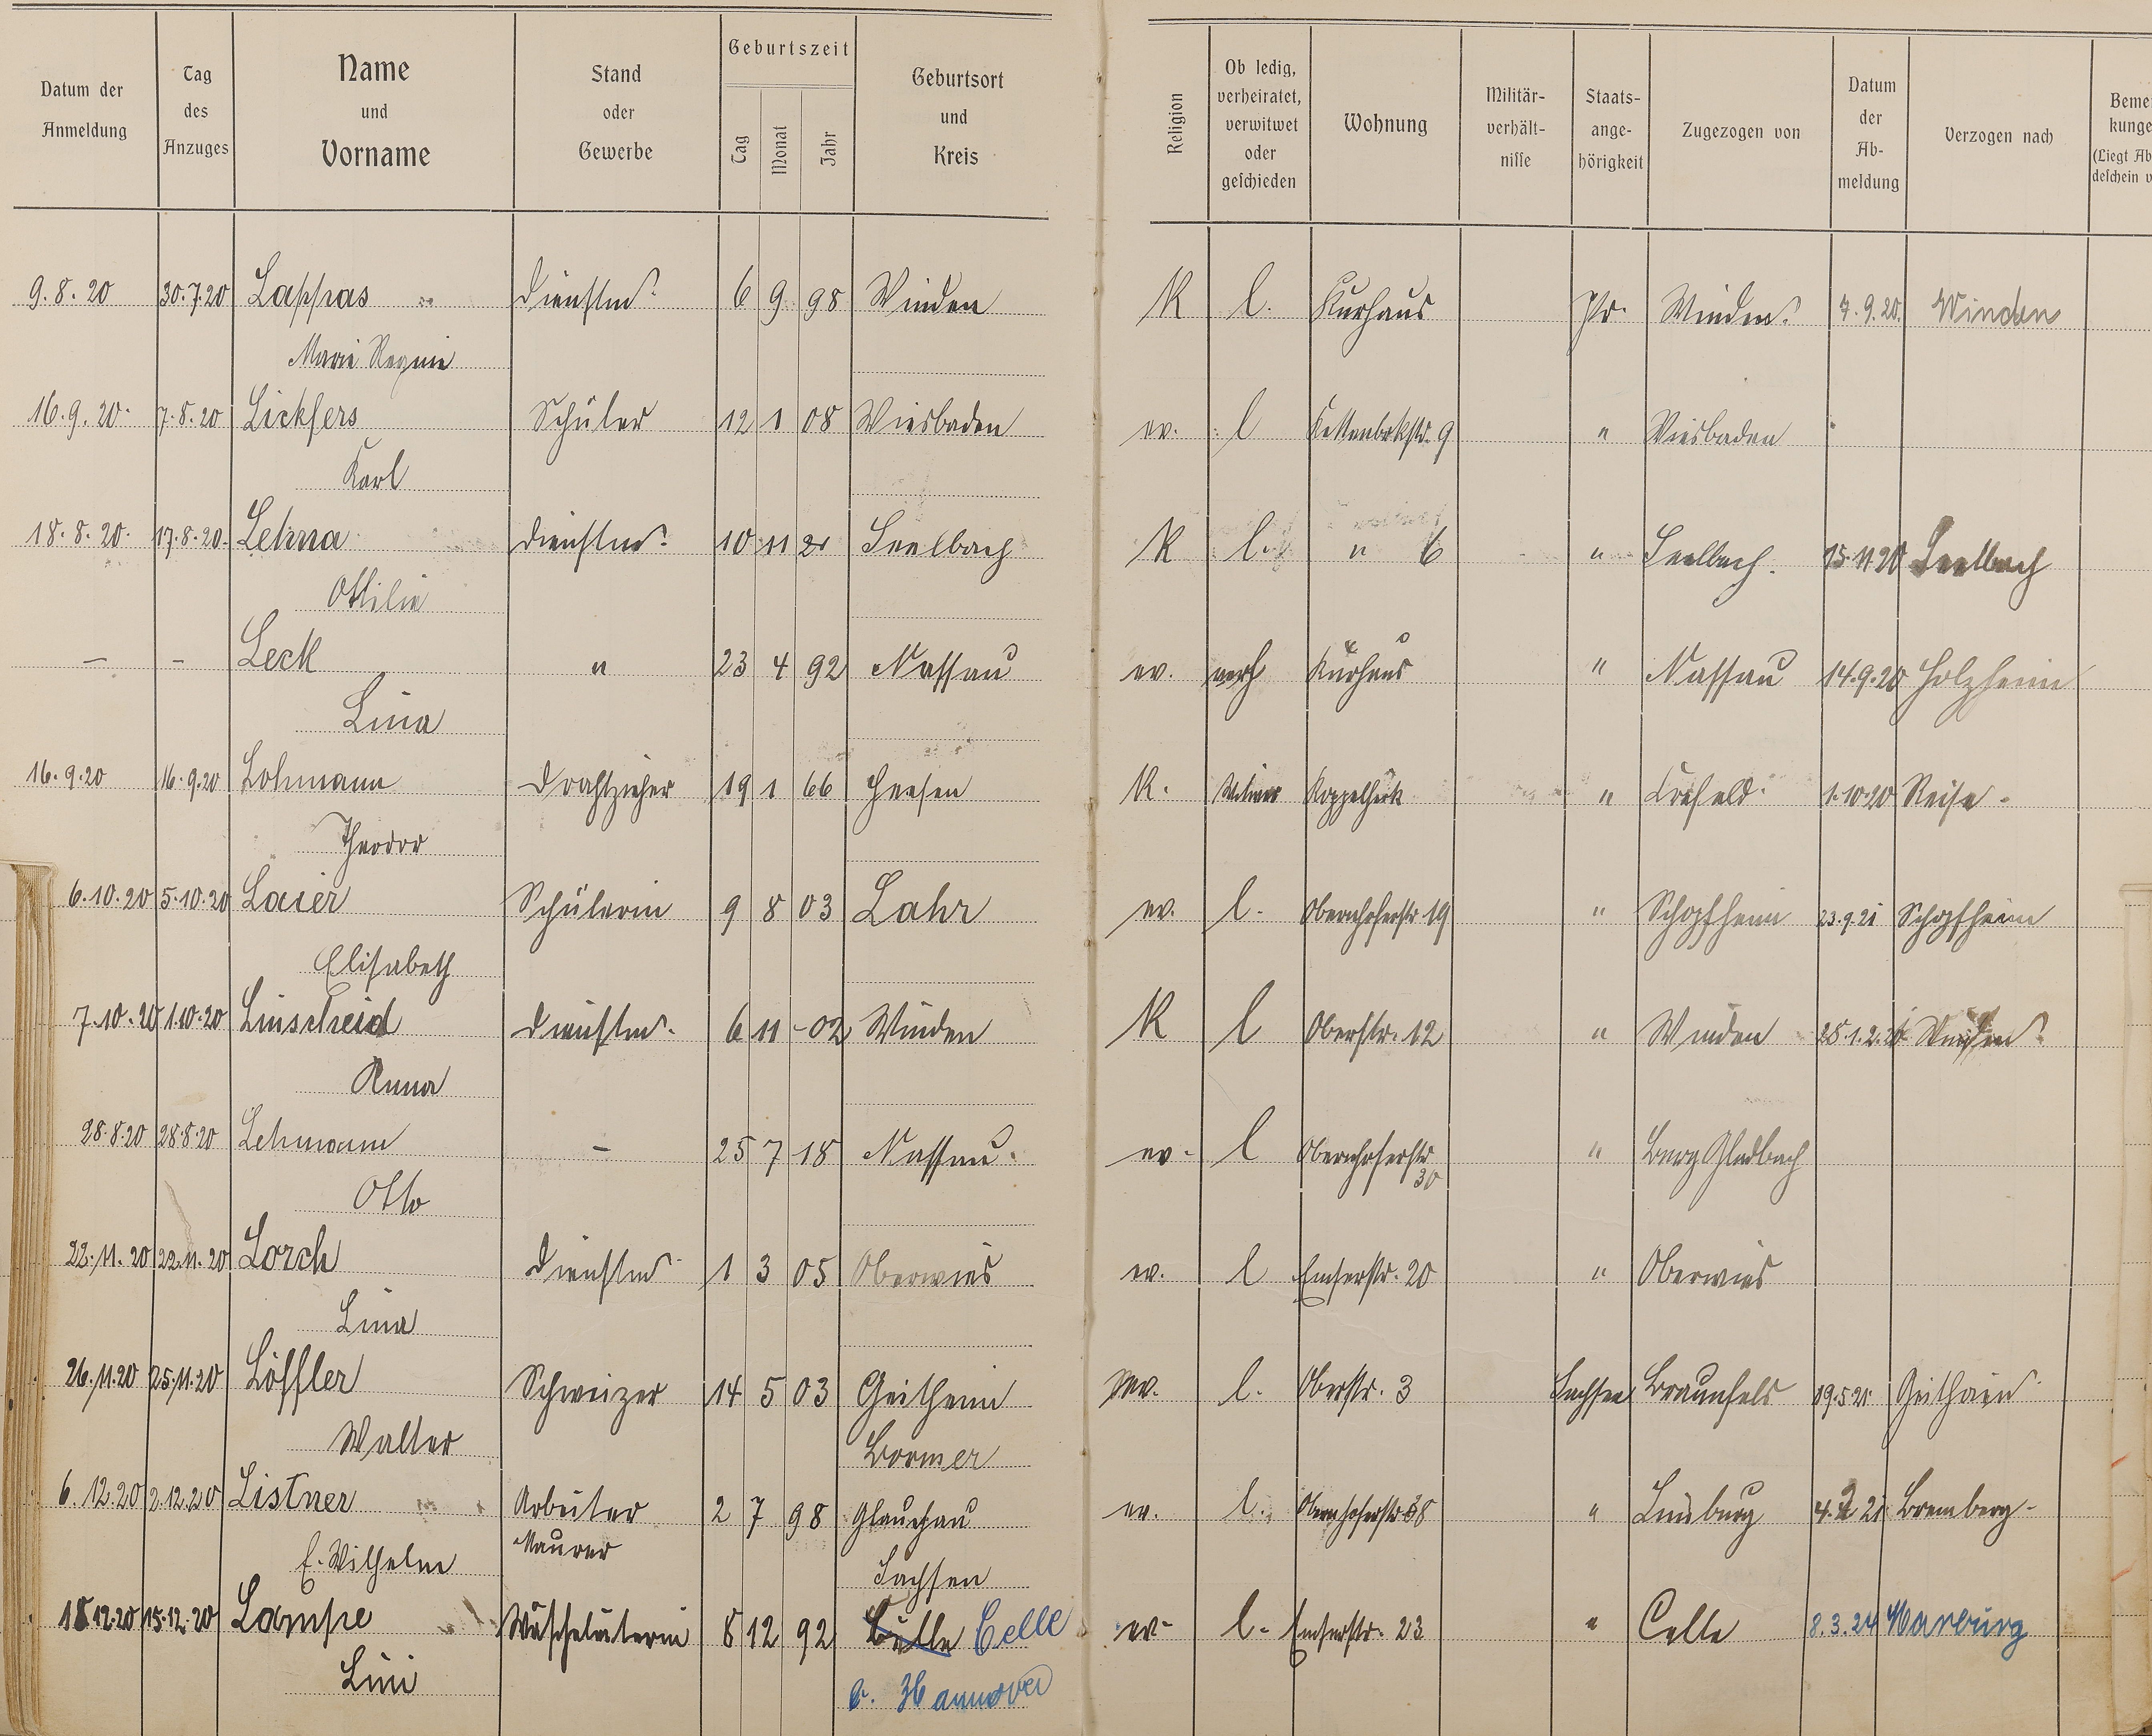 Datum der Anmeldung
Tag des Anzuges
Name und Vorname
Stand oder Gewerbe
Geburtszeit
Tag Monat Jahr
Geburtsort und Kreis
Religion
Ob ledig, verheiratet, verwitwet oder geschieden
Wohnung
Militär-verhält-nisse
Staats-ange-hörigkeit
Zugezogen von
Datum der Ab-meldung
Verzogen nach
Beme kunge (Liegt Ab deschein v
9.8.20 30.7.20 Lappas Dienstm. 6 9 98 Winden K l. Kurhaus Pr. Winden. 7.9.20. Winden
Marie Regine
16.9.20. 7.8.20 Lickfers Schüler 12 1 08 Wiesbaden ev. l 9 " Wiesbaden
Karl
18.8.20. 17.8.20. Lehna Dienstm. 10 11 Seelbach K l. " 6 " Seelbach. 15.11.20 Seelbach
Ottilie
— - Leck " 23 4 92 Nassau ev. verh Kurhaus " Nassau 14.9.20 Holzheim
Lina
16.9.20 16.9.20 Lohmann Drahtzieher 19 1 66 Heesen K. Witwer " Krefeld. 1.10.20 Reise.
Theodor
6.10.20 5.10.20 Laier Schülerin 9 8 03 Lahr ev. l. Obernhoferstr. 19 " Schopfheim 23.9.21 Schopfheim
Elisabeth
7.10.20 1.10.20 Linscheid Dienstm. 6 11 -02 Winden K l Oberstr. 12 " Winden Winden.
Anna
28.8.20 28.8.20 Lehmann — 25 7 18 Nassau. ev. l Obernhoferstr. 30 " Berg Gladbach
Otto
22.11.20 22.11.20 Lorch Dienstm 1 3 05 Oberwies ev. l Emserstr. 20 " Oberwies
Lina
26.11.20 25.11.20 Löffler Schweizer 14 5 03 Geithein ev. l. Oberstr. 3 Sachsen Braunfels 19.5.21. Geithain
Walter Borner
6.12.20 2.12.20 Listner Arbeiter 2 7 98 Glauchau ev. l. Obernhoferstr. " Limburg 21 Bremberg-
E. Wilhelm Maurer Sachsen
18.12.20 15.12.20 Lampe 8 12 92 Celle ev- l. Emserstr. 23 " Celle 8.3.24 Marburg
Lini Hannover